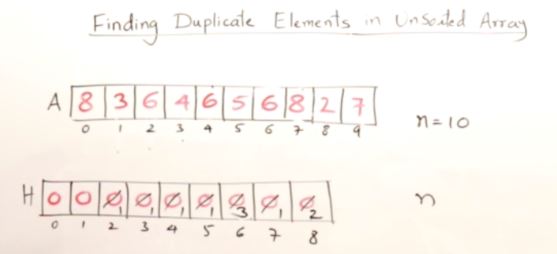 Finding Duplicate Elements in Unsorted Array
A 8 3 6 4 6 5 6 8 2 7
0 1 2 3 4 5 6 7 8 9
n=10
H 0 0 0 1 0 1 0 1 0 1 0 3 0 1 0 2
n
0 1 2 3 4 5 6 7 8